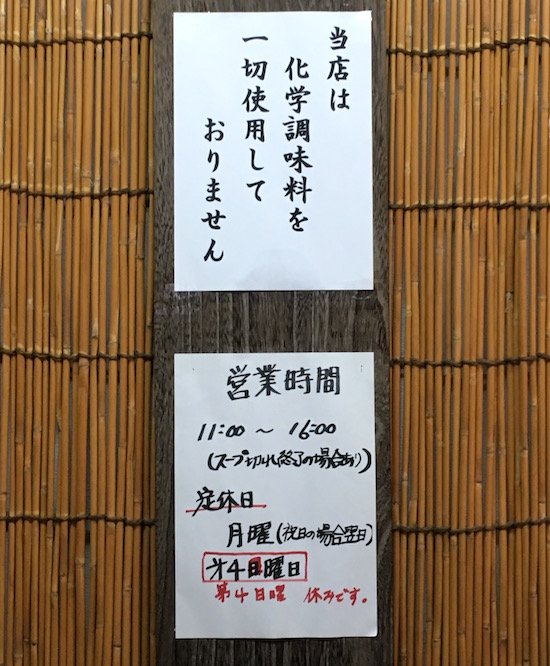 当店は
化学調味料を
一切使用して
おりません
営業時間
11:00 ～ 16:00
(スープ切れ終了の場合あり)
定休日
月曜(祝日の場合翌日)
才4日曜日
第4日曜 休みです。